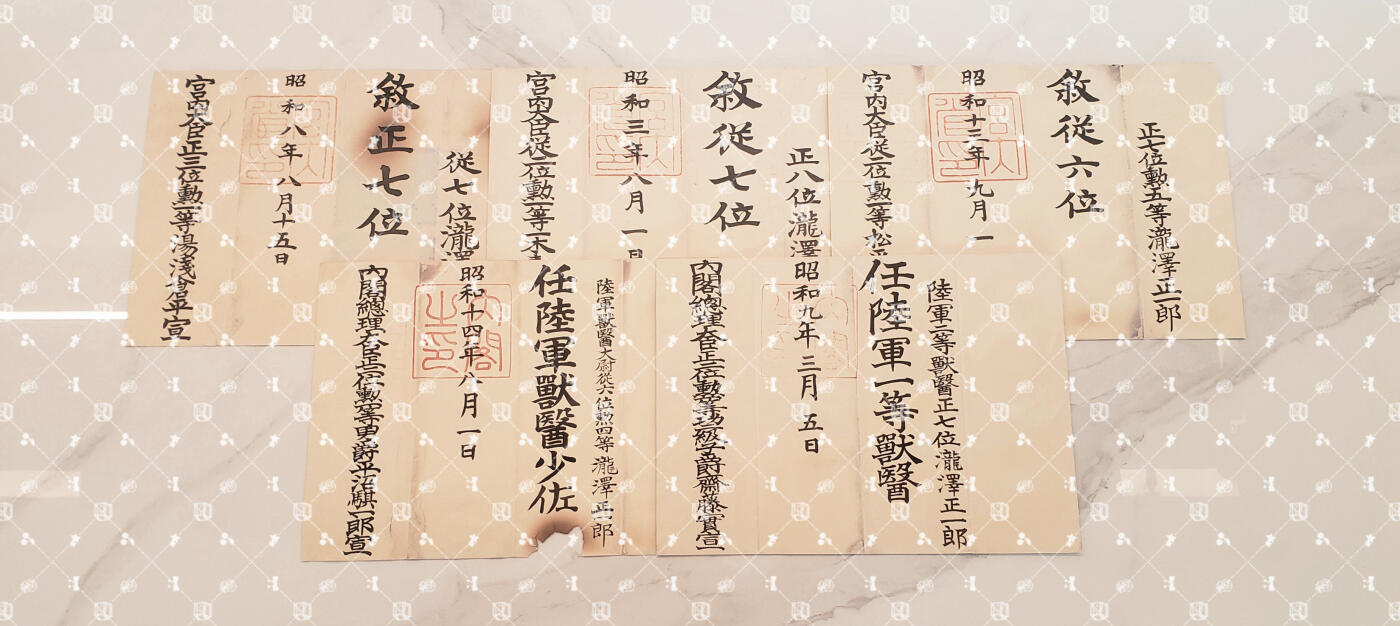 正七位勳五等瀧澤正一郎
敘從六位
昭和十三年九月一
宮內大臣從二位勳一等松
正八位瀧澤
敘從七位
昭和三年八月一日
宮內大臣從二位勳一等一木
從七位瀧澤
敘正七位
昭和八年八月十五日
宮內大臣正三位勳一等湯淺倉平宣
陸軍二等獸醫正七位瀧澤正一郎
任陸軍一等獸醫
昭和九年三月五日
內閣總理大臣正二位勳一等功二級子爵齋藤實宣
陸軍獸醫大尉從六位勳四等瀧澤正一郎
任陸軍獸醫少佐
昭和十四年八月一日
內閣之印
內閣總理大臣位勳一等男爵平沼騏一郎宣